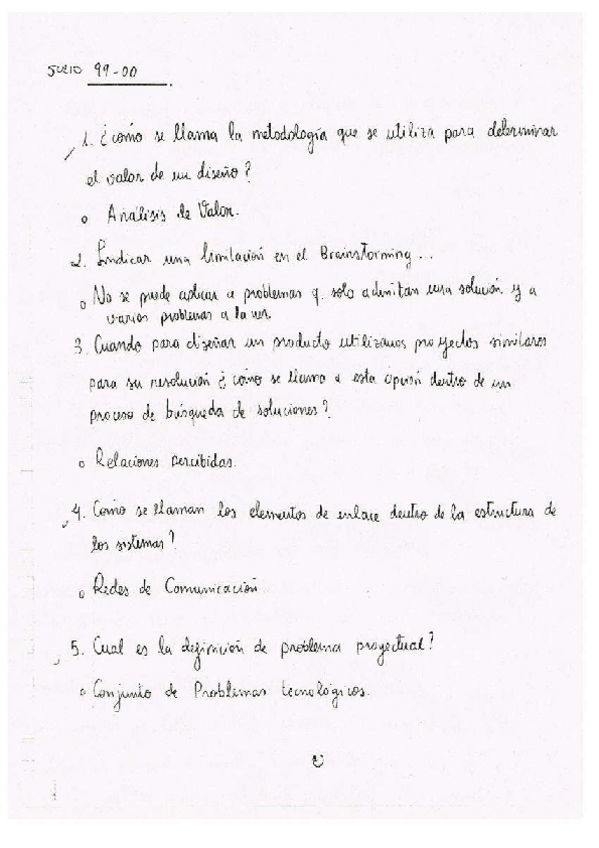 JULIO 99-00
1. ¿como se llama la metodología que se utiliza para determinar
el valor de un diseño?
o Análisis de Valor.
2. Indicar una limitación en el Brainstorming...
o No se puede aplicar a problemas q. solo admitan una solución y a
varios problemas a la vez.
3. Cuando para diseñar un producto utilizamos proyectos similares
para su resolución ¿como se llama a esta opción dentro de un
proceso de búsqueda de soluciones?
o Relaciones percibidas.
4. Como se llaman los elementos de enlace dentro de la estructura de
los sistemas?
o Redes de Comunicación
5. Cual es la definición de problema proyectual?
o Conjunto de Problemas tecnológicos.